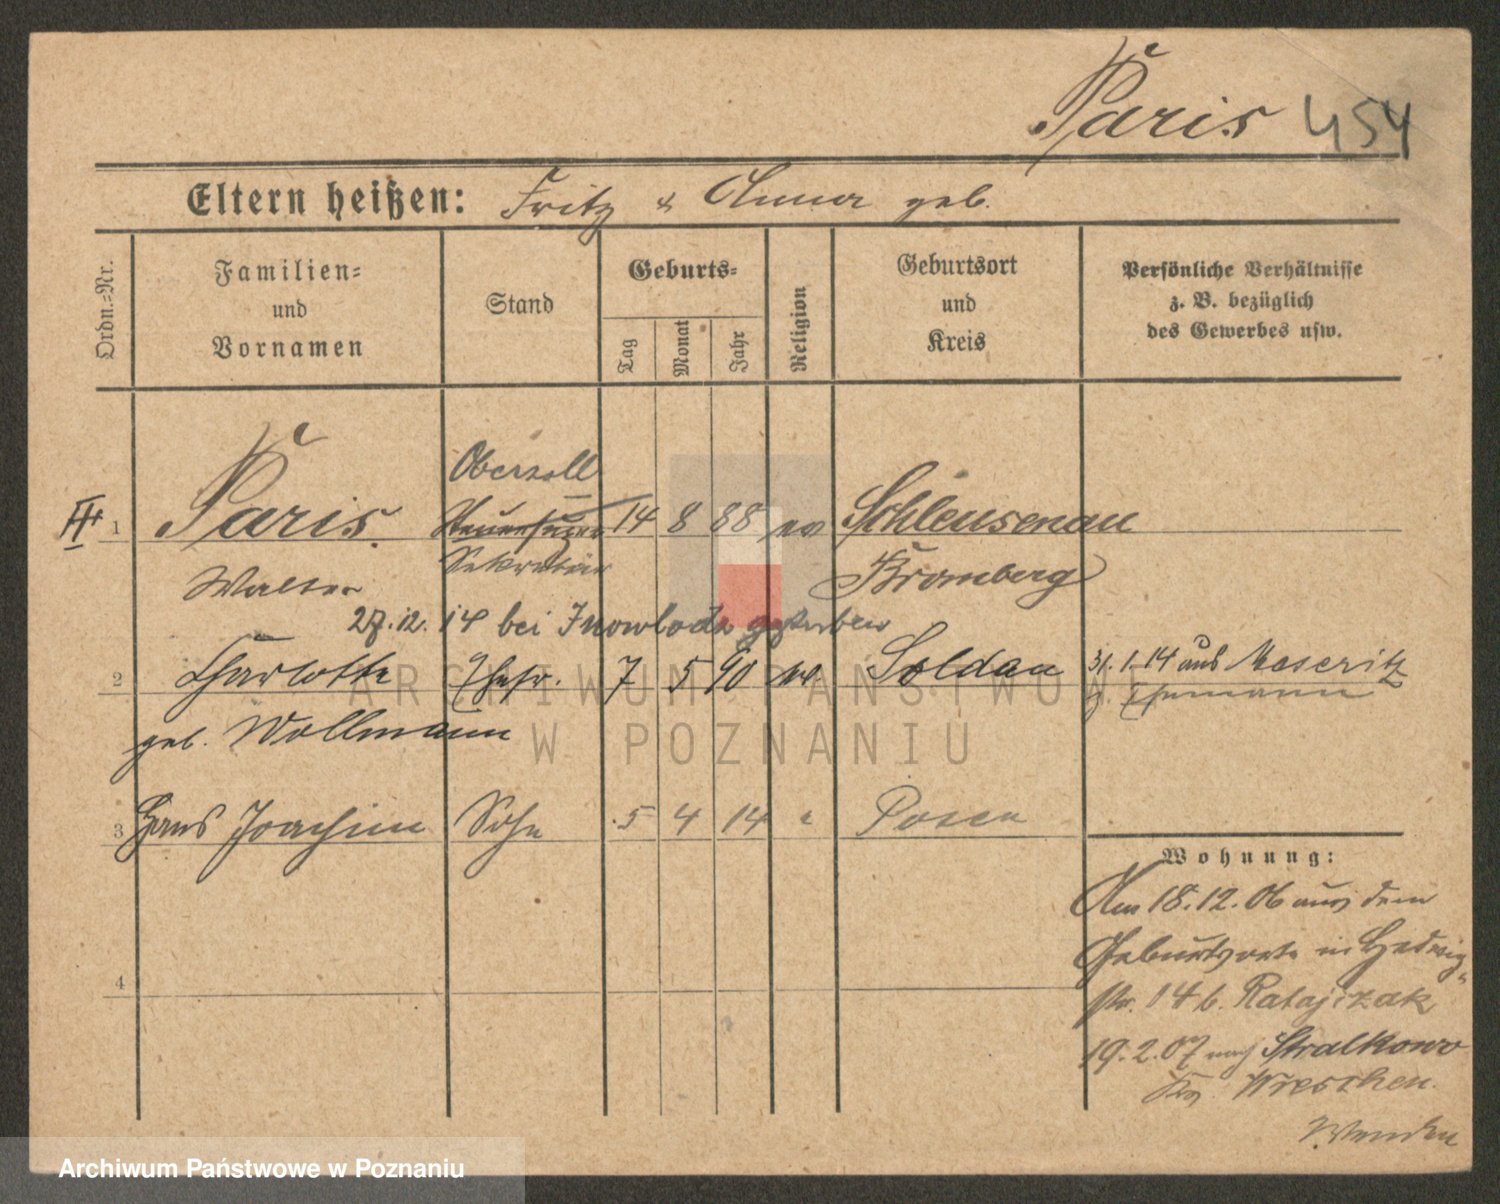 Paris 454
Eltern heißen: Fritz & Anna geb.
Ordn.=Nr.
Familien=
und
Vornamen
Stand
Geburts=
Tag
Monat
Jahr
Religion
Geburtsort
und
Kreis
Persönliche Verhältnisse
z. B. bezüglich
des Gewerbes usw.
Oberzoll
III 1 Paris 14 8 88 ev Schleusenau
Sekretär
Walter Bromberg
27.12.14 bei Inowlodz gestorben
2 Charlotte Ehefr. 7 5 90 ev. Soldau 31.1.14 aus Meseritz
z. Ehemann
geb. Wollmann
3 Hans Joachim Sohn 5 4 14 " Posen
4
Wohnung:
Am 18.12.06 aus dem
Geburtsorte in Hedwig-
str. 14 b. Ratajczak
19.2.07 nach Stralkowo
Krs. Wreschen.
Wenden
ARCHIWUM PAŃSTWOWE
W POZNANIU
Archiwum Państwowe w Poznaniu